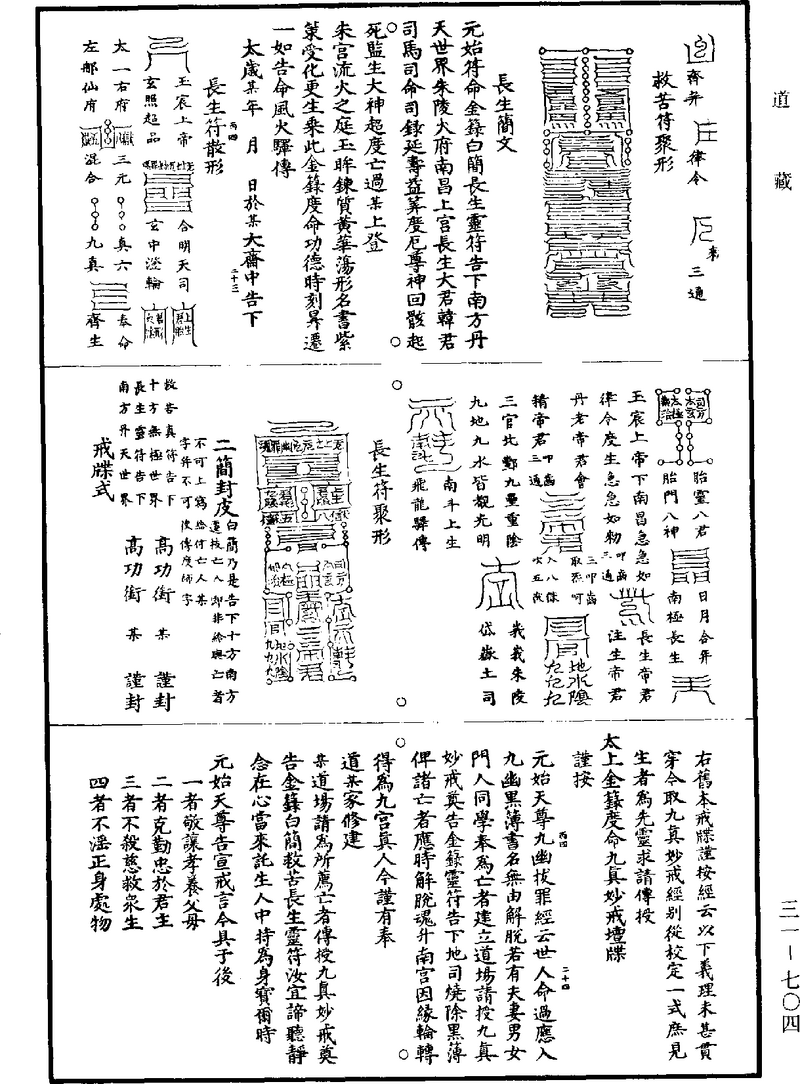 道藏
齊并
律令
三通
救苦符聚形
長生簡文
元始符命金籙白簡長生靈符告下南方丹
天世界朱陵大府南昌上宮長生大君韓君
司馬司命司錄延壽益筭度厄尊神回骸起
死監生大神超度亡過某上登
朱宮流火之庭玉眸鍊質黃華蕩形名書紫
策受化更生乘此金籙度命功德時刻昇遷
一如告命風火驛傳
太歲某年 月 日於某大齋中告下
丙四
二十三
長生符散形
玉宸上帝
合明天司
玄照超品
玄中澄輪
太一右府
三元
真六
奉命
左郡仙府
混合
九真
齊生
胎靈八君
日月合并
胎門八神
南極長生
玉宸上帝下南昌急急如
律令度生急急如勑
叩齒三通
長生帝君
注生帝君
丹老帝君會
三叩齒
取炁呵
精帝君
叩齒三通
三官北酆九壘重陰
九地九水皆覩光明
峩峩朱陵
岱嶽土司
南斗上生
飛龍驛傳
長生符聚形
二簡封皮
白簡乃是告下十方南方
還拔亡人即非給與亡者
不可上寫給付亡人某
字并不可使傳度師字
救苦真符告下
十方無極世界
高功銜 某 謹封
長生靈符告下
南方丹天世界
高功銜 某 謹封
戒牒式
右舊本戒牒謹按經云以下義理未甚貫
穿今取九真妙戒經別從校定一式庶見
生者為先靈求請傳授
太上金籙度命九真妙戒壇牒
謹按
元始天尊九幽拔罪經云世人命過應入
丙四
二十四
九幽黑簿書名無由解脫若有夫妻男女
門人同學奉為亡者建立道場請授九真
妙戒奠告金籙靈符告下地司燒除黑簿
俾諸亡者應時解脫魂升南宮因緣輪轉
得為九宮真人今謹有奉
道某家修建
某道場請為所薦亡者傳授九真妙戒奠
告金籙白簡救苦長生靈符汝宜諦聽靜
念在心當來託生人中持為身寶爾時
元始天尊告宣戒言今具于後
一者敬讓孝養父母
二者克勤忠於君主
三者不殺慈救眾生
四者不淫正身處物
三一—七〇四